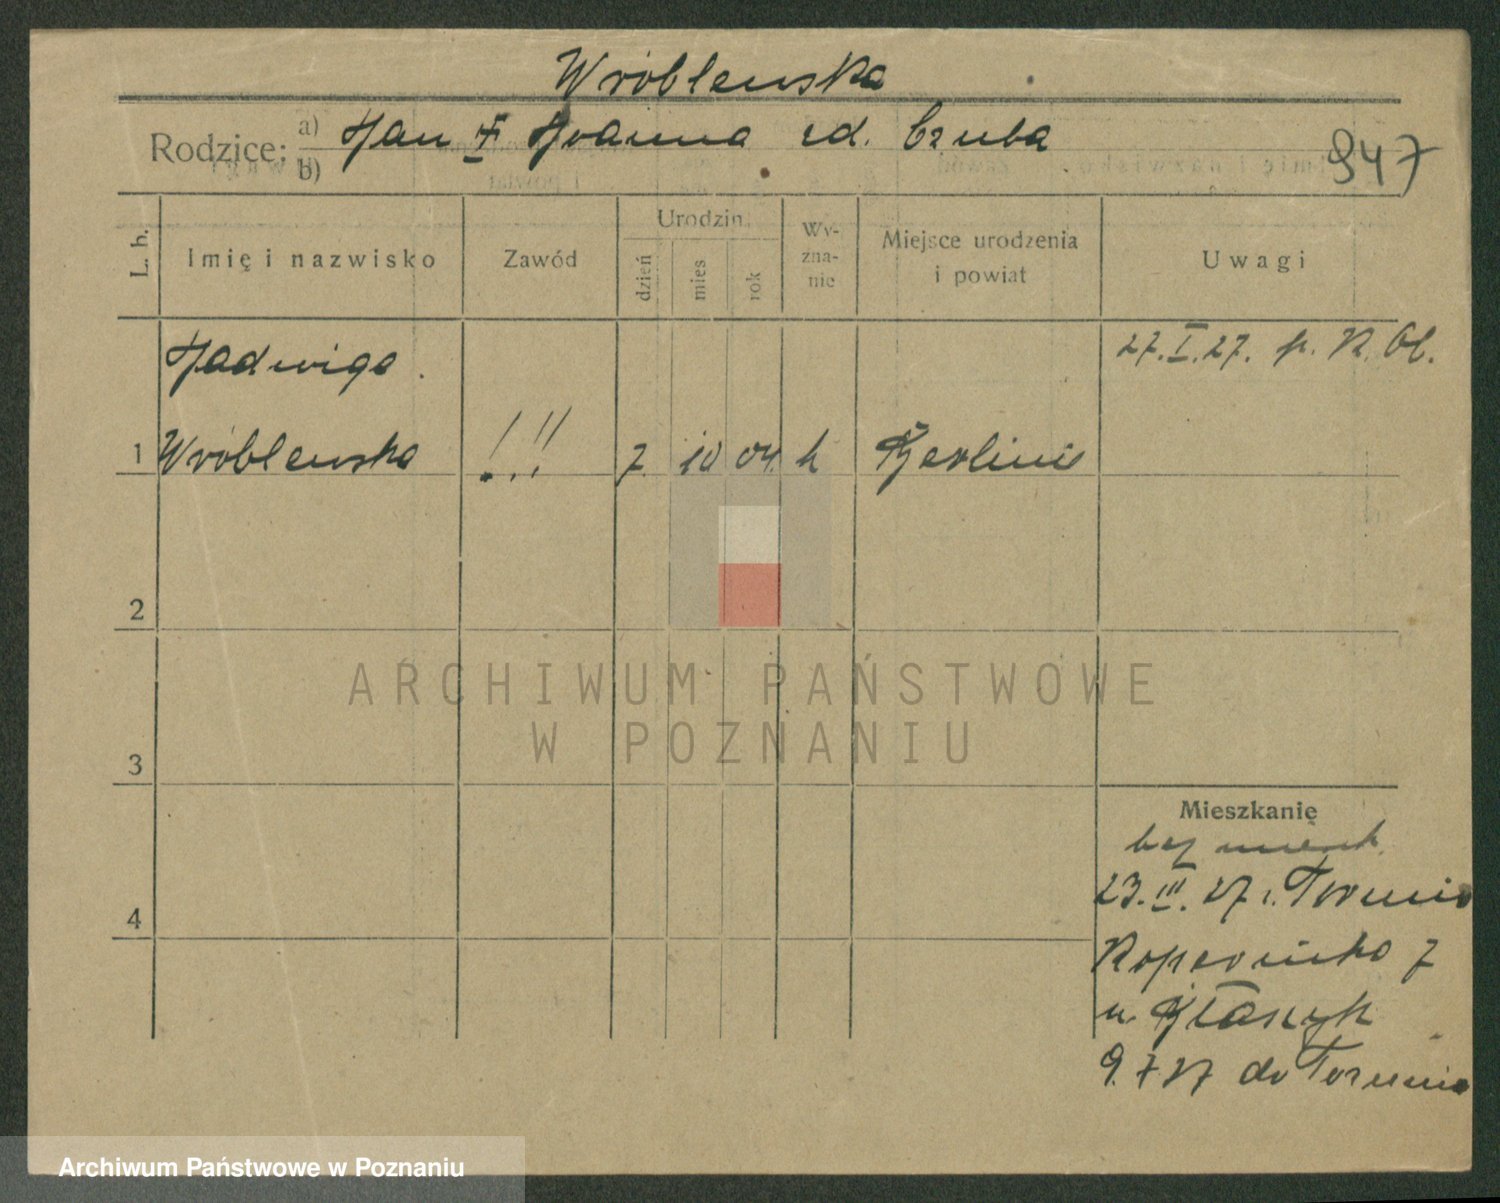 Wróblewska
Rodzice: a) Jan i Joanna zd. Czuba
b)
947
L. b. Imię i nazwisko Zawód Urodzin. dzień mies rok Wy-zna-nie Miejsce urodzenia i powiat Uwagi
Jadwiga 27.I.27. p. K. Ob.
1 Wróblewska !!! 7 10 04. k Berlinie
2
3
4
Mieszkanię
bez mieszk.
23.III.27 z Torunia
Kopernika 7
u Błaszyk
9.7.27 do Torunia
ARCHIWUM PAŃSTWOWE
W POZNANIU
Archiwum Państwowe w Poznaniu